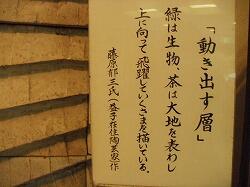 「動き出す層」
緑は生物、茶は大地を表わし
上に向って飛躍していくさまを描いている。
藤原郁三氏(益子在住陶芸家)作